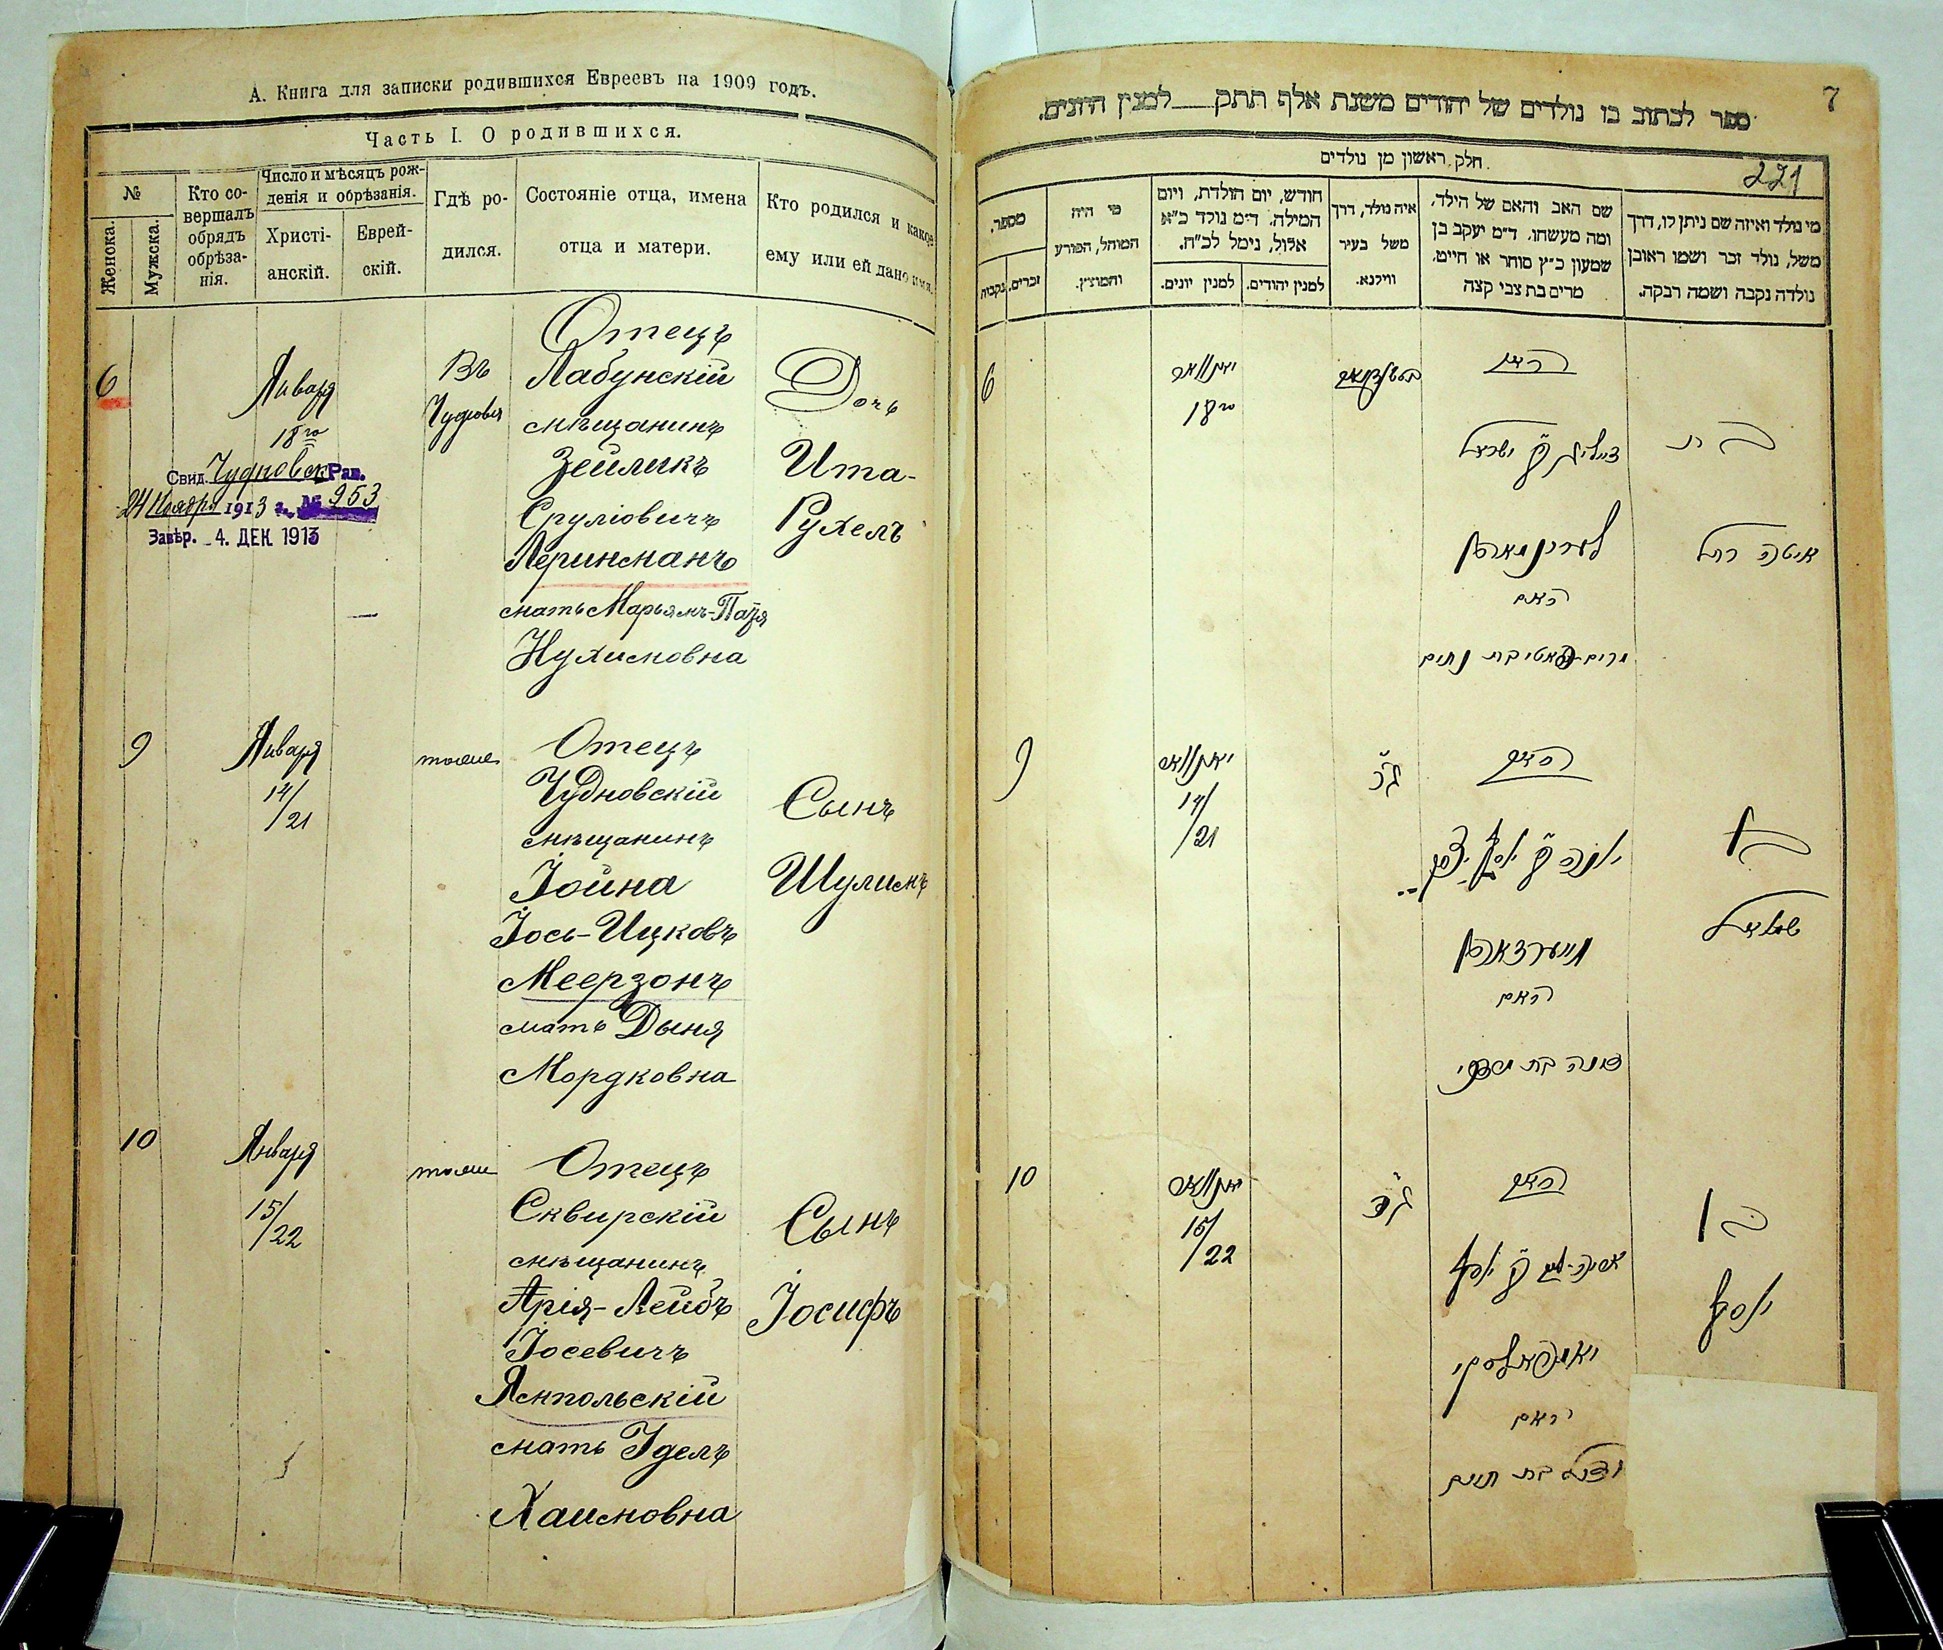 А. Книга для записки родившихся Евреевъ на 1909 годъ.
Часть I. О родившихся.
№
Женска.
Мужска.
Кто со-
вершалъ
обрядъ
обрѣза-
нія.
Число и мѣсяцъ рож-
денія и обрѣзанія.
Христі-
анскій.
Еврей-
скій.
Гдѣ ро-
дился.
Состояніе отца, имена
отца и матери.
Кто родился и какое
ему или ей дано имя.
6
Января
18го
Въ
Чуднов
Отецъ
Лабунскій
мѣщанинъ
Зейликъ
Сруліовичъ
Леринманъ
мать Марьямъ-Патя
Нухимовна
Дочь
Ита-
Рухель
Свид. Чудновск Рав.
24 Ноября 1913 г. № 953
Завѣр. 4. ДЕК. 1913
9
Января
14/
/21
тоже
Отецъ
Чудновскій
мѣщанинъ
Іойна
Іось-Ицковъ
Меерзонъ
мать Дыня
Мордковна
Сынъ
Шулимъ
10
Января
15/
/22
тоже
Отецъ
Сквирскій
мѣщанинъ
Арія-Лейбъ
Іосевичъ
Ямпольскій
мать Удель
Хаимовна
Сынъ
Іосифъ
7
ספר לכתוב בו נולדים של יהודים משנת אלף תתק__למנין היונים.
חלק ראשון מן נולדים
221
מי נולד ואיזה שם ניתן לו, דרך
משל, נולד זכר ושמו ראובן
נולדה נקבה ושמה רבקה.
שם האב והאם של הילד,
ומה מעשהו, ד״מ יעקב בן
שמעון כ״ץ סוחר או חייט,
מרים בת צבי קצה
איה נולד, דרך
משל בעיר
ווילנא.
חודש, יום הולדת, ויום
המילה, ד״מ נולד כ״א
אלול, נימל לכ״ח.
למנין יהודים.
למנין יונים.
מי היה
המוהל, הפורע
והמוצץ.
מספר.
זכרים.
נקבות
6
יאנוואר
18го
האב
זייליק ב״ר ישראל
לערינמאן
האם
מרים-פאטי בת נחום
בת
איטה רחל
9
יאנוואר
14/
/21
האב
יונה ב״ר יוסף יצחק
מייערזאהן
האם
דינה בת מרדכי
בן
10
יאנוואר
15/
/22
האב
אריה-ליב ב״ר יוסף
יאמפאלסקי
האם
בן
יוסף